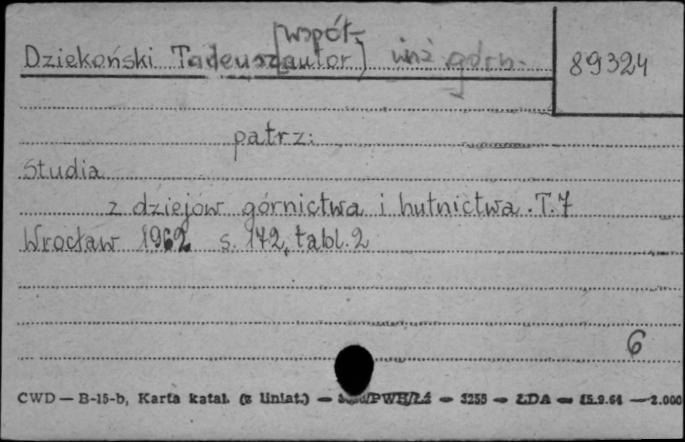 [współ-
Dziekoński Tadeusz autor] inż. górn.
89324
patrz:
Studia
z dziejów górnictwa i hutnictwa. T. 7
Wrocław 1962 s. 142, tabl. 2
6
CWD — B-15-b, Karta katal. (z liniat.) — PWH/Łź — 3255 — ŁDA — 15.9.64 — 2.000